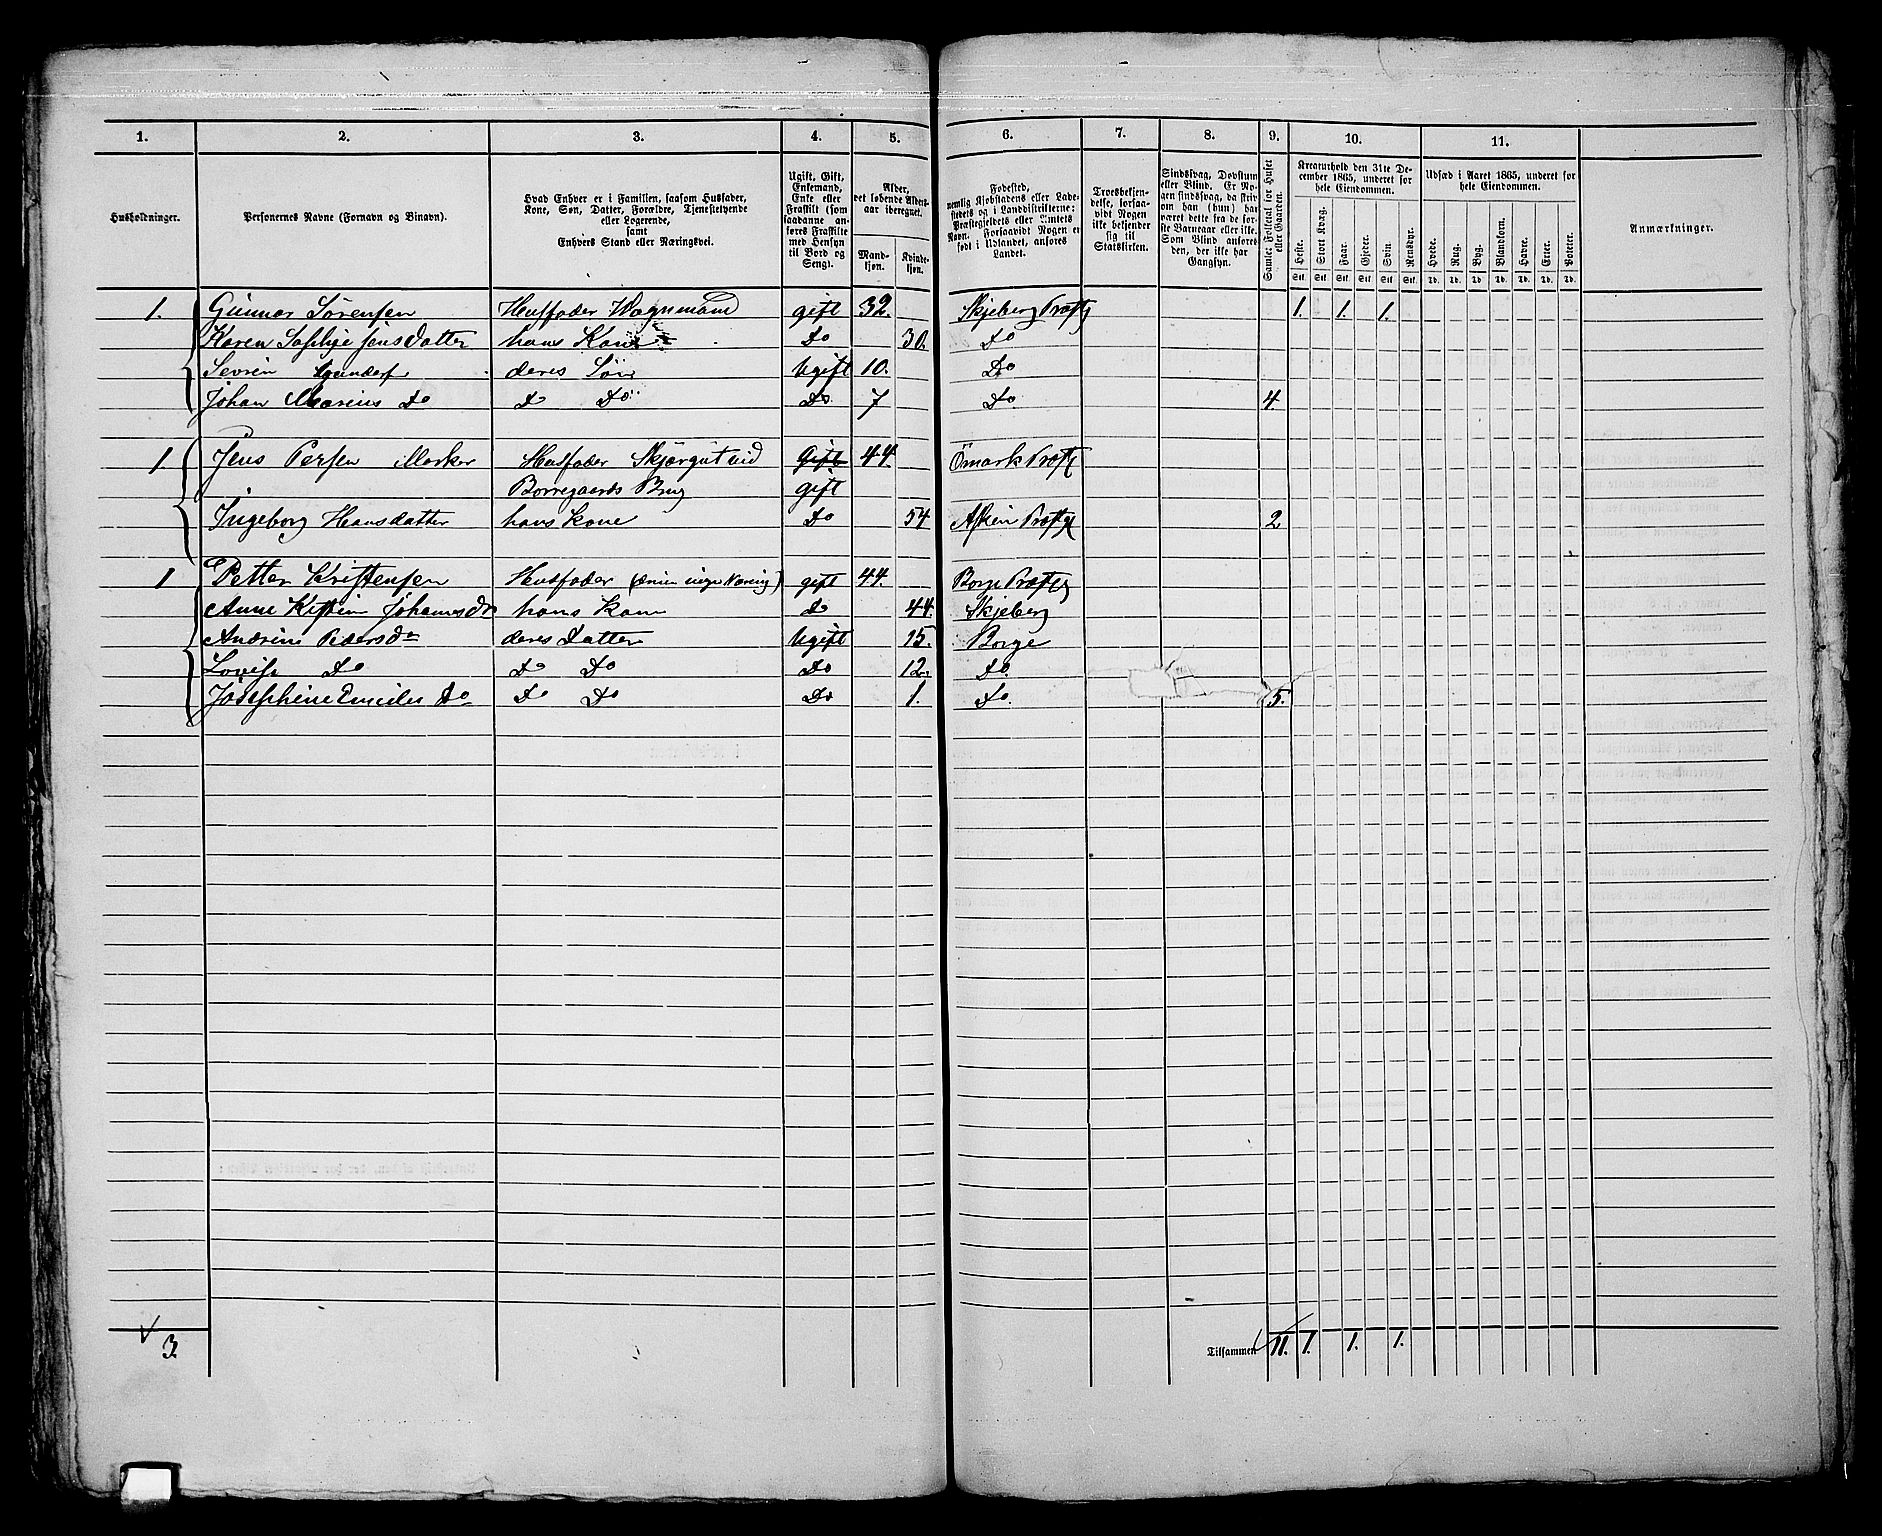 1. 2. 3. 4. 5. 6. 7. 8. 9. 10. 11.
Husholdninger.
Personernes Navne (Fornavn og Binavn).
Hvad Enhver er i Familien, saasom Husfader,
Kone, Søn, Datter, Forældre, Tjenestetyende
eller Logerende,
samt
Enhvers Stand eller Næringsvei.
Ugift, Gift,
Enkemand,
Enke eller
Fraskilt (som
saadanne an-
føres Fraskilte
med Hensyn
til Bord og
Seng).
Alder,
det løbende Alders-
aar iberegnet.
Mand-
kjøn.
Kvinde-
kjøn.
Fødested,
nemlig Kjøbstadens eller Lade-
stedets og i Landdistrikterne:
Præstegjeldets eller Amtets
Navn. Forsaavidt Nogen er
født i Udlandet, anføres
Landet.
Troesbekjen-
delse, forsaa-
vidt Nogen
ikke bekjender
sig til
Statskirken.
Sindssvag, Døvstum
eller Blind. Er No-
gen sindssvag, da skriv
om han (hun) har
været dette fra de før-
ste Barneaar eller ikke.
Som Blind anføres
den, der ikke har
Gangsyn.
Samlet Folketal for Huset
eller Gaarden.
Kreaturhold den 31te De-
cember 1865, underet for
hele Eiendommen.
Heste. Stort Kvæg. Faar. Gjeder. Svin. Rensdyr.
Stk. Stk. Stk. Stk. Stk. Stk.
Udsæd i Aaret 1865, underet for
hele Eiendommen.
Hvede. Rug. Byg. Blandkorn. Havre. Erter. Poteter.
Td. Td. Td. Td. Td. Td. Td.
Anmærkninger.
1. Gunnar Sørensen Husfader Vognmand gift 32. Skjeberg Præstg 1. 1. 1.
Karen Sophie Jensdatter hans Kone Do 30. Do
Sevrin Gunders deres Søn Ugift 10. Do
Johan Marius Do Do Do Do 7 Do 4.
1. Jens Persen Morker Husfader Gift 44. Ömark Præstg
Borregaards Brug gift
Ingeborg Hansdatter hans Kone Do 54 Askim Præstg 2
1 Petter Kristensen Husfader gift 44. Borge Præstg
Anne Kistin Johannesdr hans Kone Do 44. Skjeberg
Andrine Pedersdr deres Datter Ugift 15. Borge
Lovise Do Do Do Do 12. Do.
Josephine Do Do Do Do 1. Do. 5.
3. Tilsammen 11. 1. 1. 1.